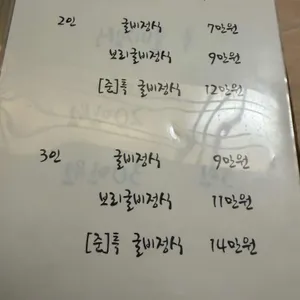 2인 굴비정식 7만원
보리굴비정식 9만원
[준]특 굴비정식 12만원
3인 굴비정식 9만원
보리굴비정식 11만원
[준]특 굴비정식 14만원